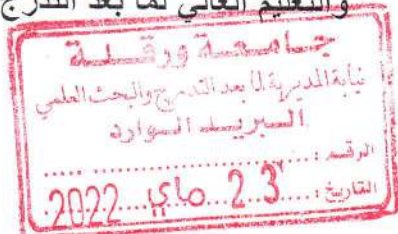 والتعليم العالي لما بعد التدرج
جامعة ورقلة
نيابة المديرية لما بعد التدرج والبحث العلمي
البريد الوارد
الرقم : ....................
التاريخ : 23 ماي 2022